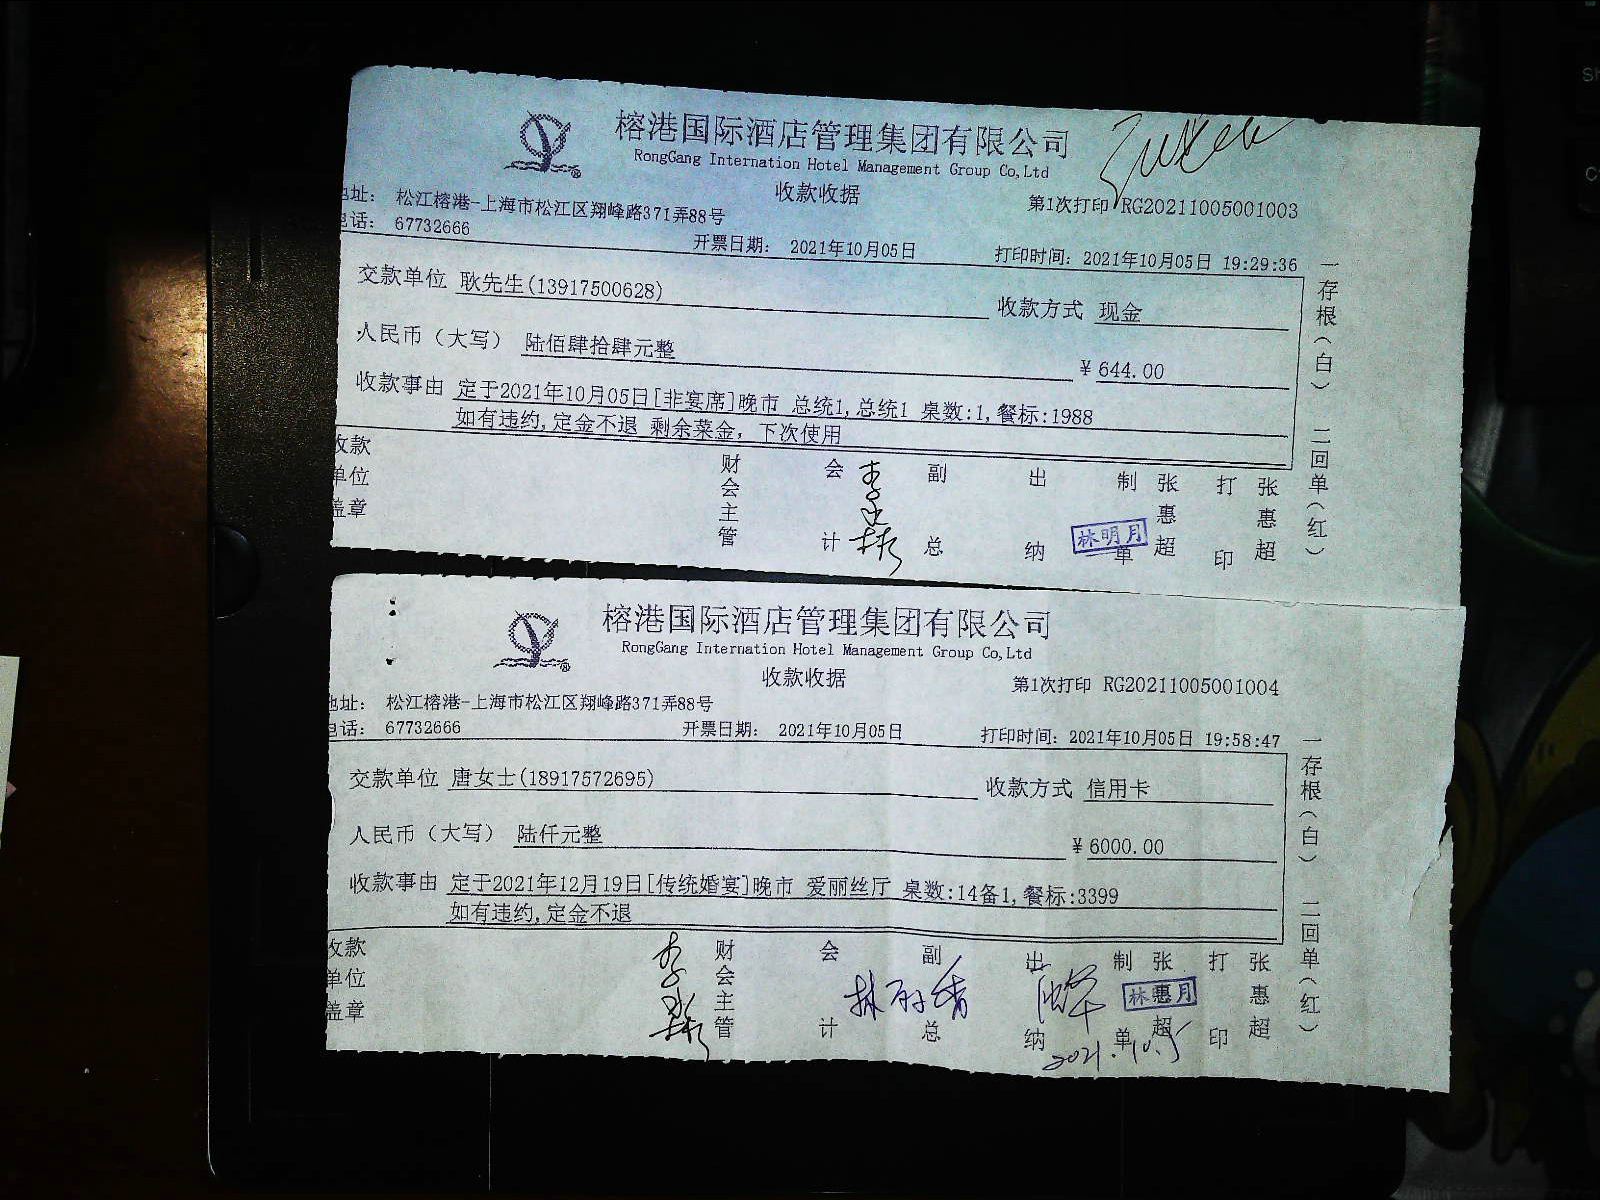 榕港国际酒店管理集团有限公司
RongGang Internation Hotel Management Group Co,Ltd
收款收据
地址： 松江榕港-上海市松江区翔峰路371弄88号
第1次打印 RG20211005001003
电话： 67732666
开票日期： 2021年10月05日
打印时间：2021年10月05日 19:29:36
交款单位 耿先生(13917500628)
收款方式 现金
人民币（大写） 陆佰肆拾肆元整
¥ 644.00
收款事由 定于2021年10月05日[非宴席]晚市 总统1,总统1 桌数:1,餐标:1988
如有违约,定金不退 剩余菜金，下次使用
收款单位盖章
财会主管
会计
副总
出纳
制单 张惠超
打印 张惠超
林明月
一存根（白） 二回单（红）
榕港国际酒店管理集团有限公司
RongGang Internation Hotel Management Group Co,Ltd
收款收据
第1次打印 RG20211005001004
地址： 松江榕港-上海市松江区翔峰路371弄88号
电话： 67732666
开票日期： 2021年10月05日
打印时间：2021年10月05日 19:58:47
交款单位 唐女士(18917572695)
收款方式 信用卡
人民币（大写） 陆仟元整
¥ 6000.00
收款事由 定于2021年12月19日[传统婚宴]晚市 爱丽丝厅 桌数:14备1,餐标:3399
如有违约,定金不退
收款单位盖章
财会主管
会计
副总
出纳
制单 张惠超
打印 张惠超
2021.10.5
一存根（白） 二回单（红）